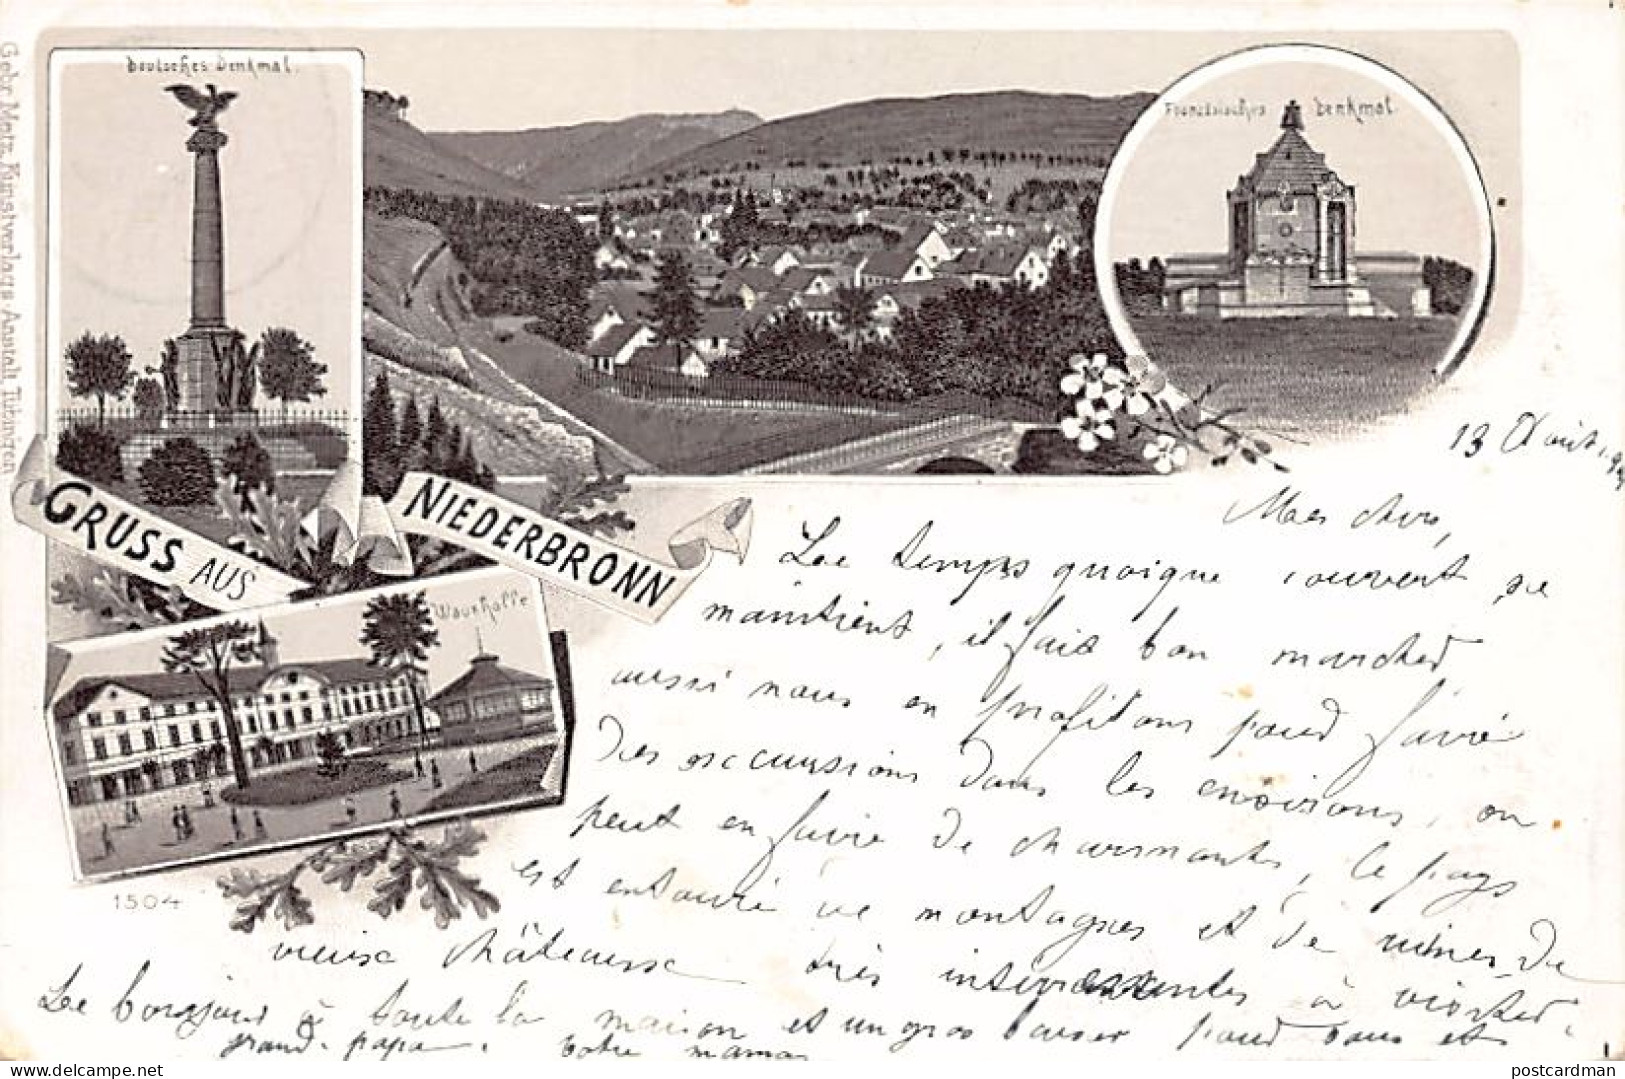 Deutsches Denkmal.
Französisches Denkmal
Gebr. Metz, Kunstverlags-Anstalt Tübingen
GRUSS AUS
NIEDERBRONN
Wauxhalle
1504
13 Août
Mes chers,
Le temps quoique couvert se
maintient, il fait bon marcher
aussi nous en profitons pour faire
des excursions dans les environs, on
peut en faire de charmantes, le pays
est entouré de montagnes et de ruines de
vieux châteaux très intéressantes à visiter.
Le bonjour à toute la maison et un gros baiser pour vous et
grand-papa. Votre maman
postcardman